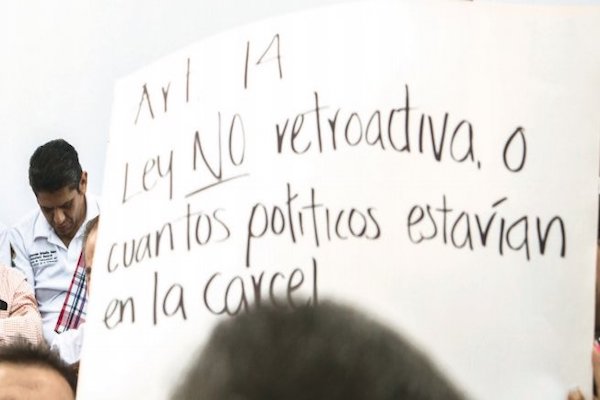 Art. 14
Ley NO retroactiva, o
cuantos políticos estavían
en la carcel